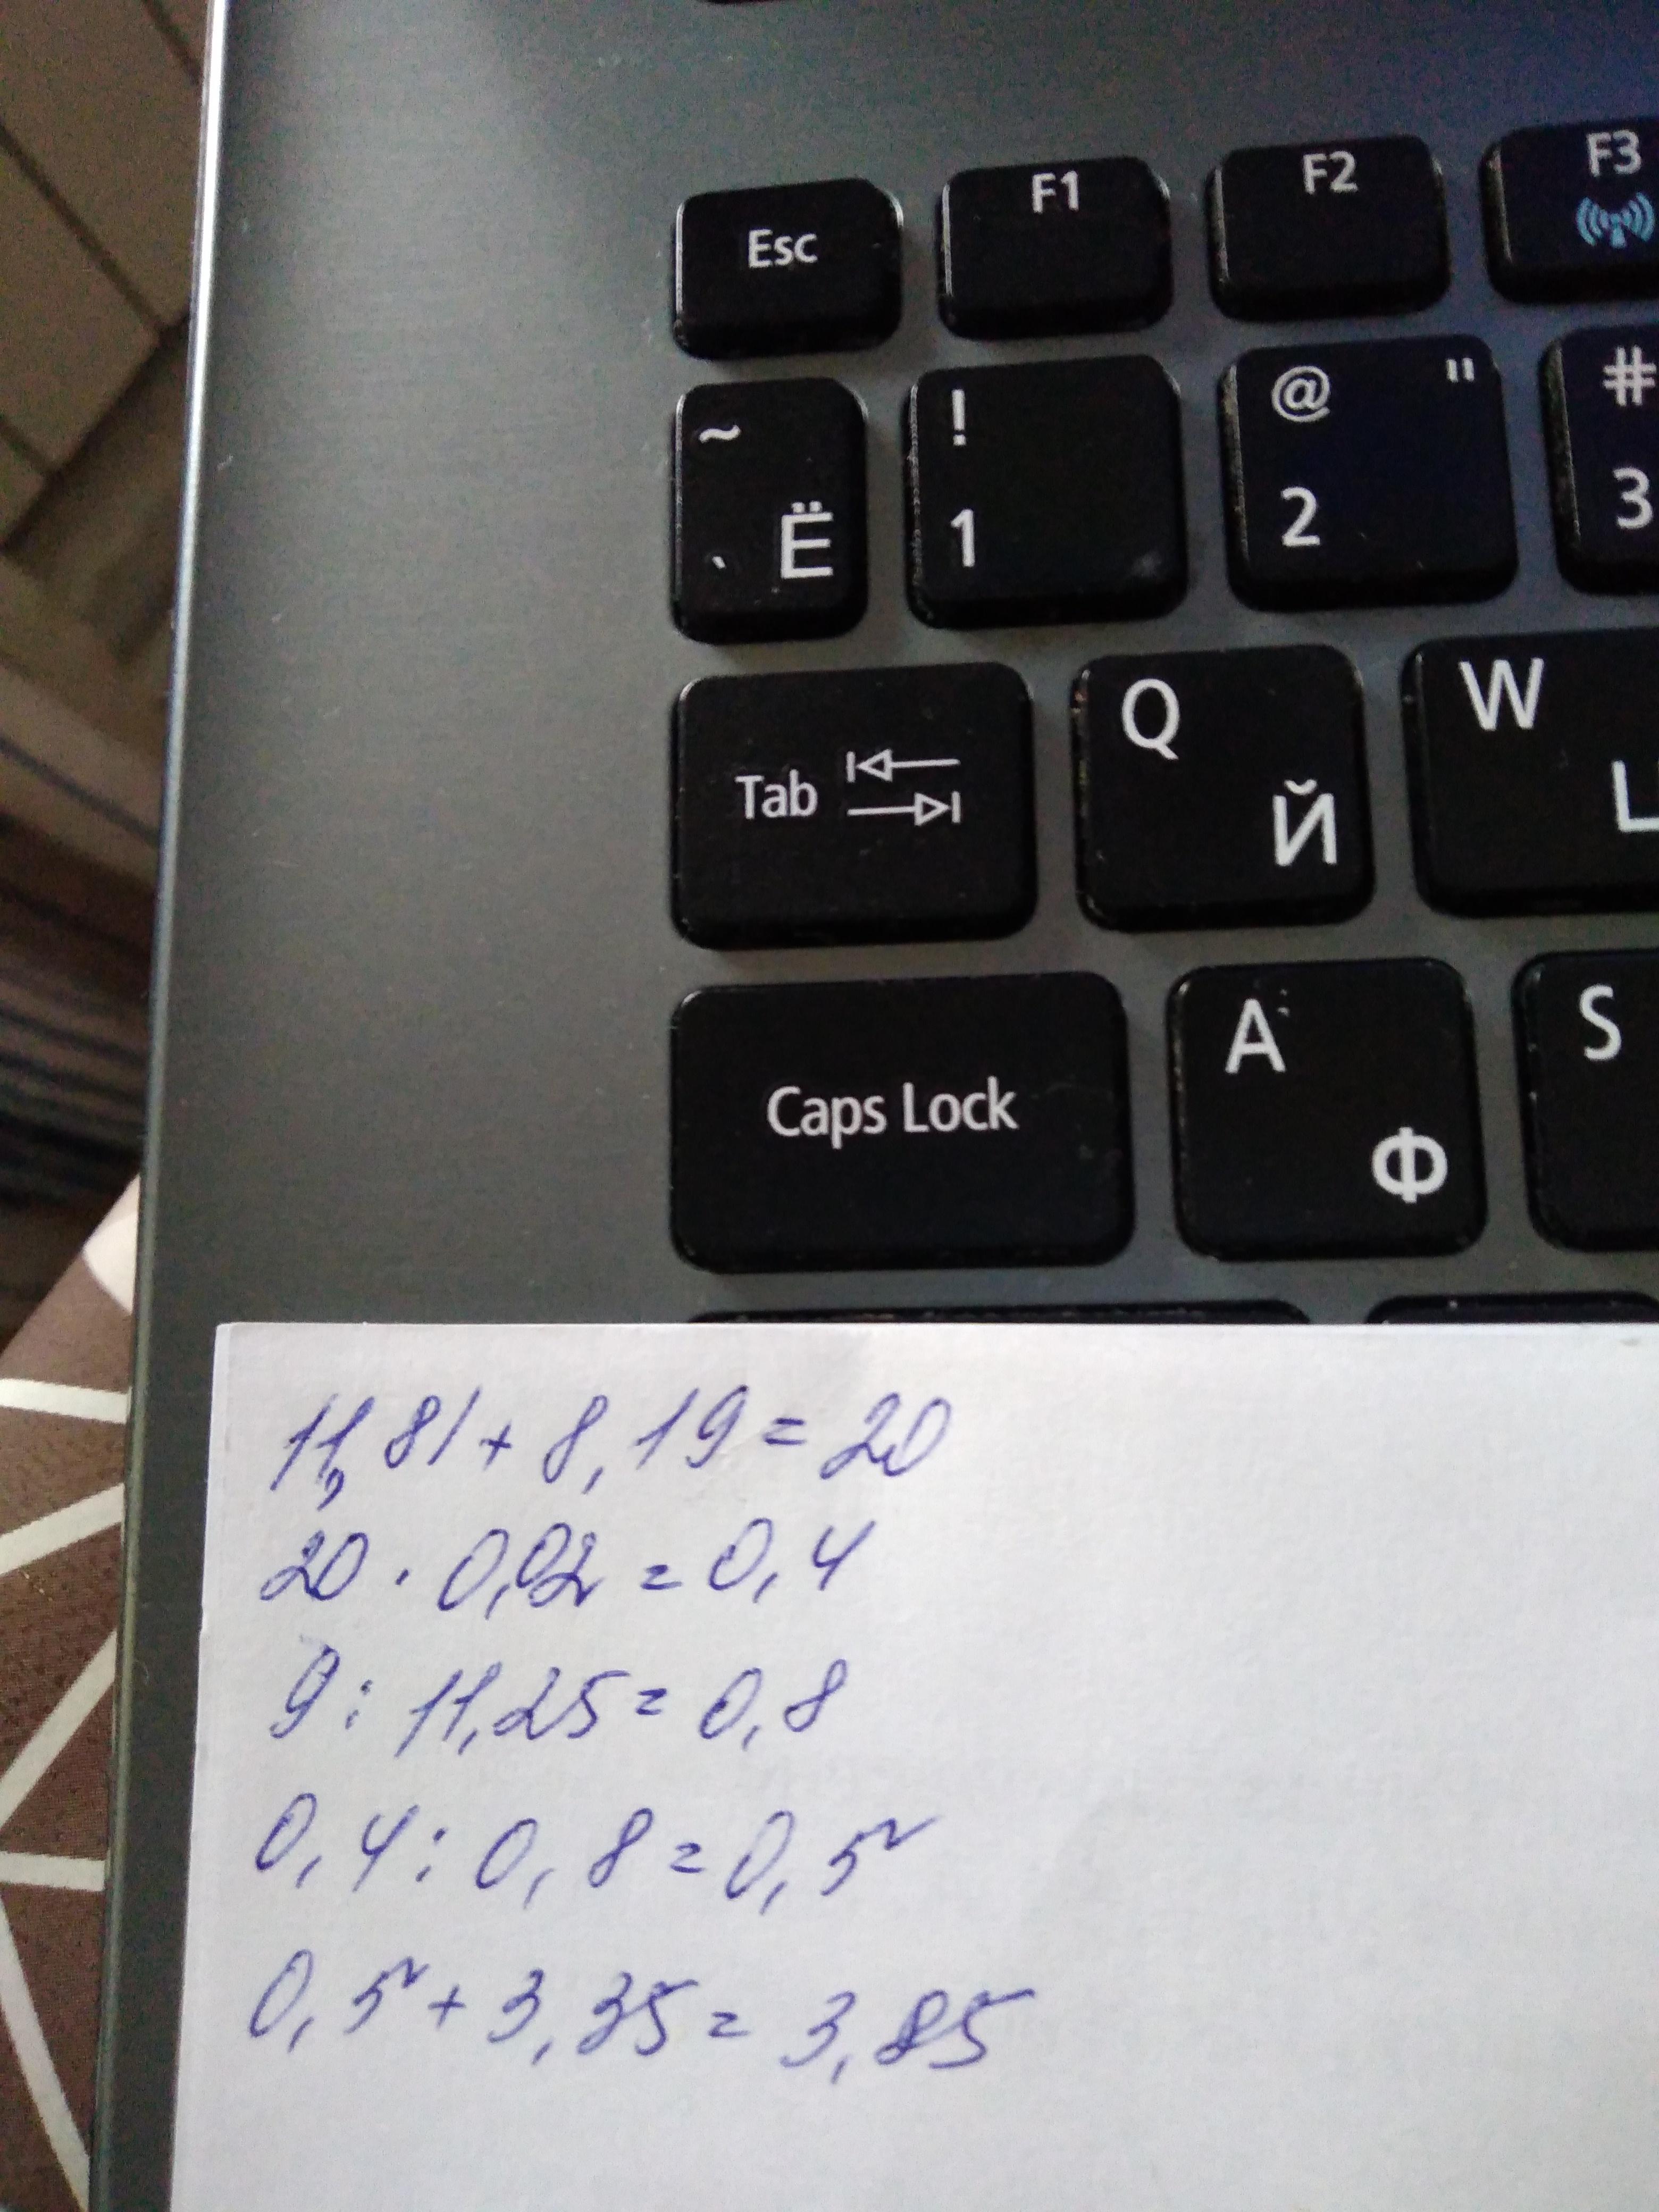 Esc F1 F2 F3
~ ! @ " #
` Ё 1 2 3
Tab Q Й W
Caps Lock A Ф S
11,81 + 8,19 = 20
20 · 0,02 = 0,4
9 : 11,25 = 0,8
0,4 : 0,8 = 0,5
0,5 + 3,35 = 3,85